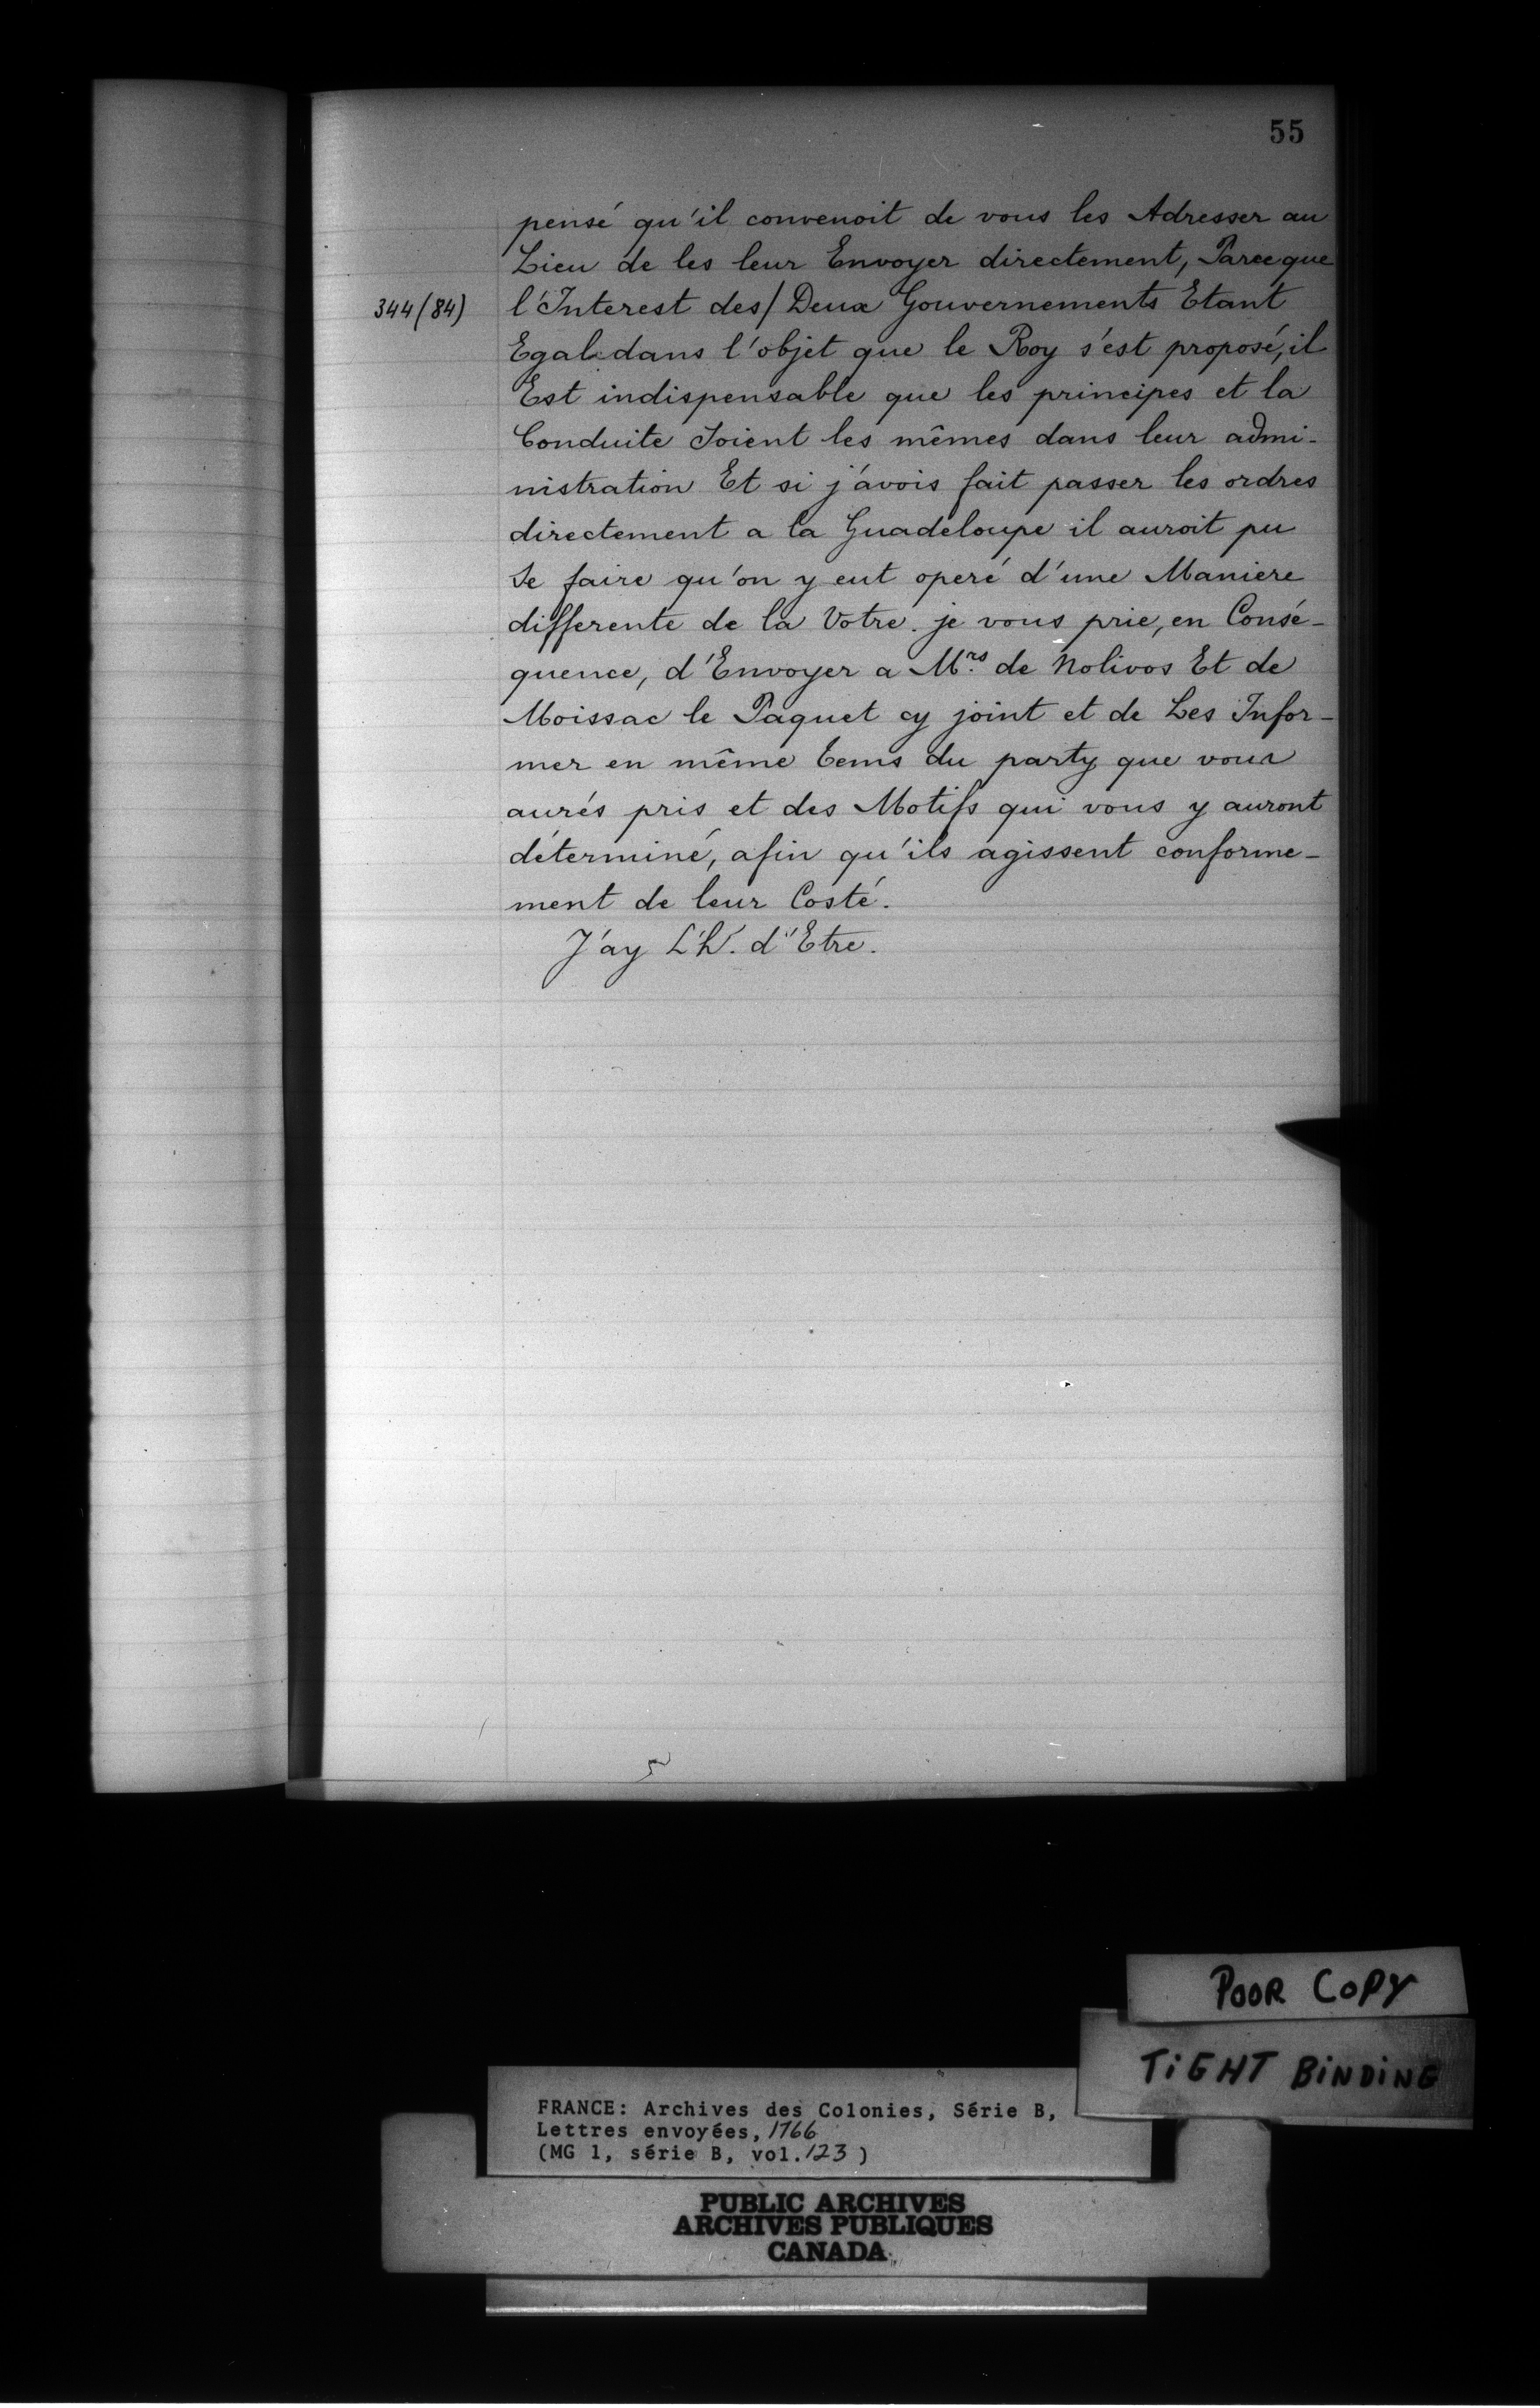 55
pensé qu'il convenoit de vous les Adresser au
Lieu de les leur Envoyer directement, Parceque
344 (84) l'Interest des / Deux Gouvernements Etant
Egal dans l'objet que le Roy s'est proposé, il
Est indispensable que les principes et la
Conduite Soient les mêmes dans leur admi-
nistration Et si j'avois fait passer les ordres
directement a la Guadeloupe il auroit pu
Se faire qu'on y eut operé d'une Maniere
differente de la Votre. je vous prie, en Consé-
quence, d'Envoyer a Mrs. de Nolivos Et de
Moissac le Paquet cy joint et de Les Infor-
mer en même tems du party que vous
aurés pris et des Motifs qui vous y auront
déterminé, afin qu'ils agissent conforme-
ment de leur Costé.
J'ay L'h'. d'Etre.
POOR COPY
TIGHT BINDING
FRANCE: Archives des Colonies, Série B,
Lettres envoyées, 1766
(MG 1, série B, vol. 123)
PUBLIC ARCHIVES
ARCHIVES PUBLIQUES
CANADA